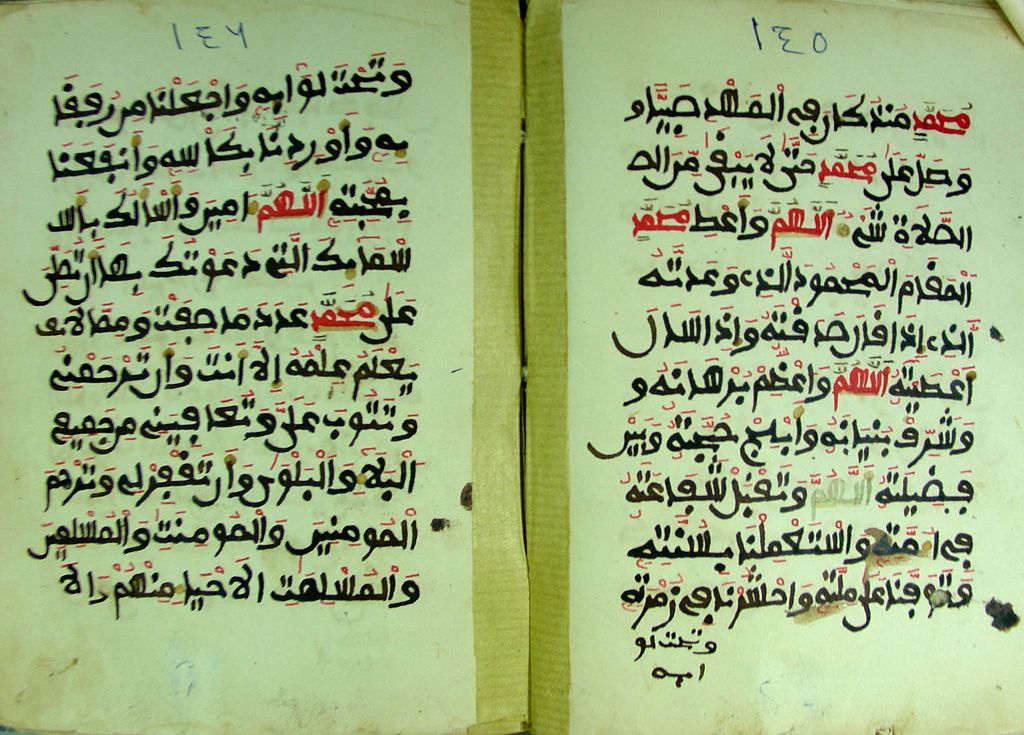 ١٤٥
محمد منذ كان في المهد صبيا و
وصل على محمد حتى لا يبقى من الص
الصلاة شيء اللهم واعط محمد
المقام المحمود الذي وعدته
الذي اذا قال صدقته واذا سال
اعطيته اللهم واعظم برهانه و
وشرف بنيانه وابلج حجته وبين
فضيلته اللهم وتقبل شفاعته
في امته واستعملنا بسنته
وتوفنا على ملته واحشرنا في زمرته
وتحت لو
ايه
١٤٦
وتحت لوايه واجعلنا من رفقا
يه واوردنا بكاسه وانفعنا
بمحبته اللهم امين واسالك باس
سمايك التي دعوتك بها ان تصلي
على محمد عدد ما صفت ومما لا
يعلم علمه الا انت وان ترحمني
وتتوب علي وتعافيني من جميع
البلاء والبلوى وان تغفر لي وترحم
المومنين والمومنت والمسلمين
والمسلمت الاحياء منهم والا